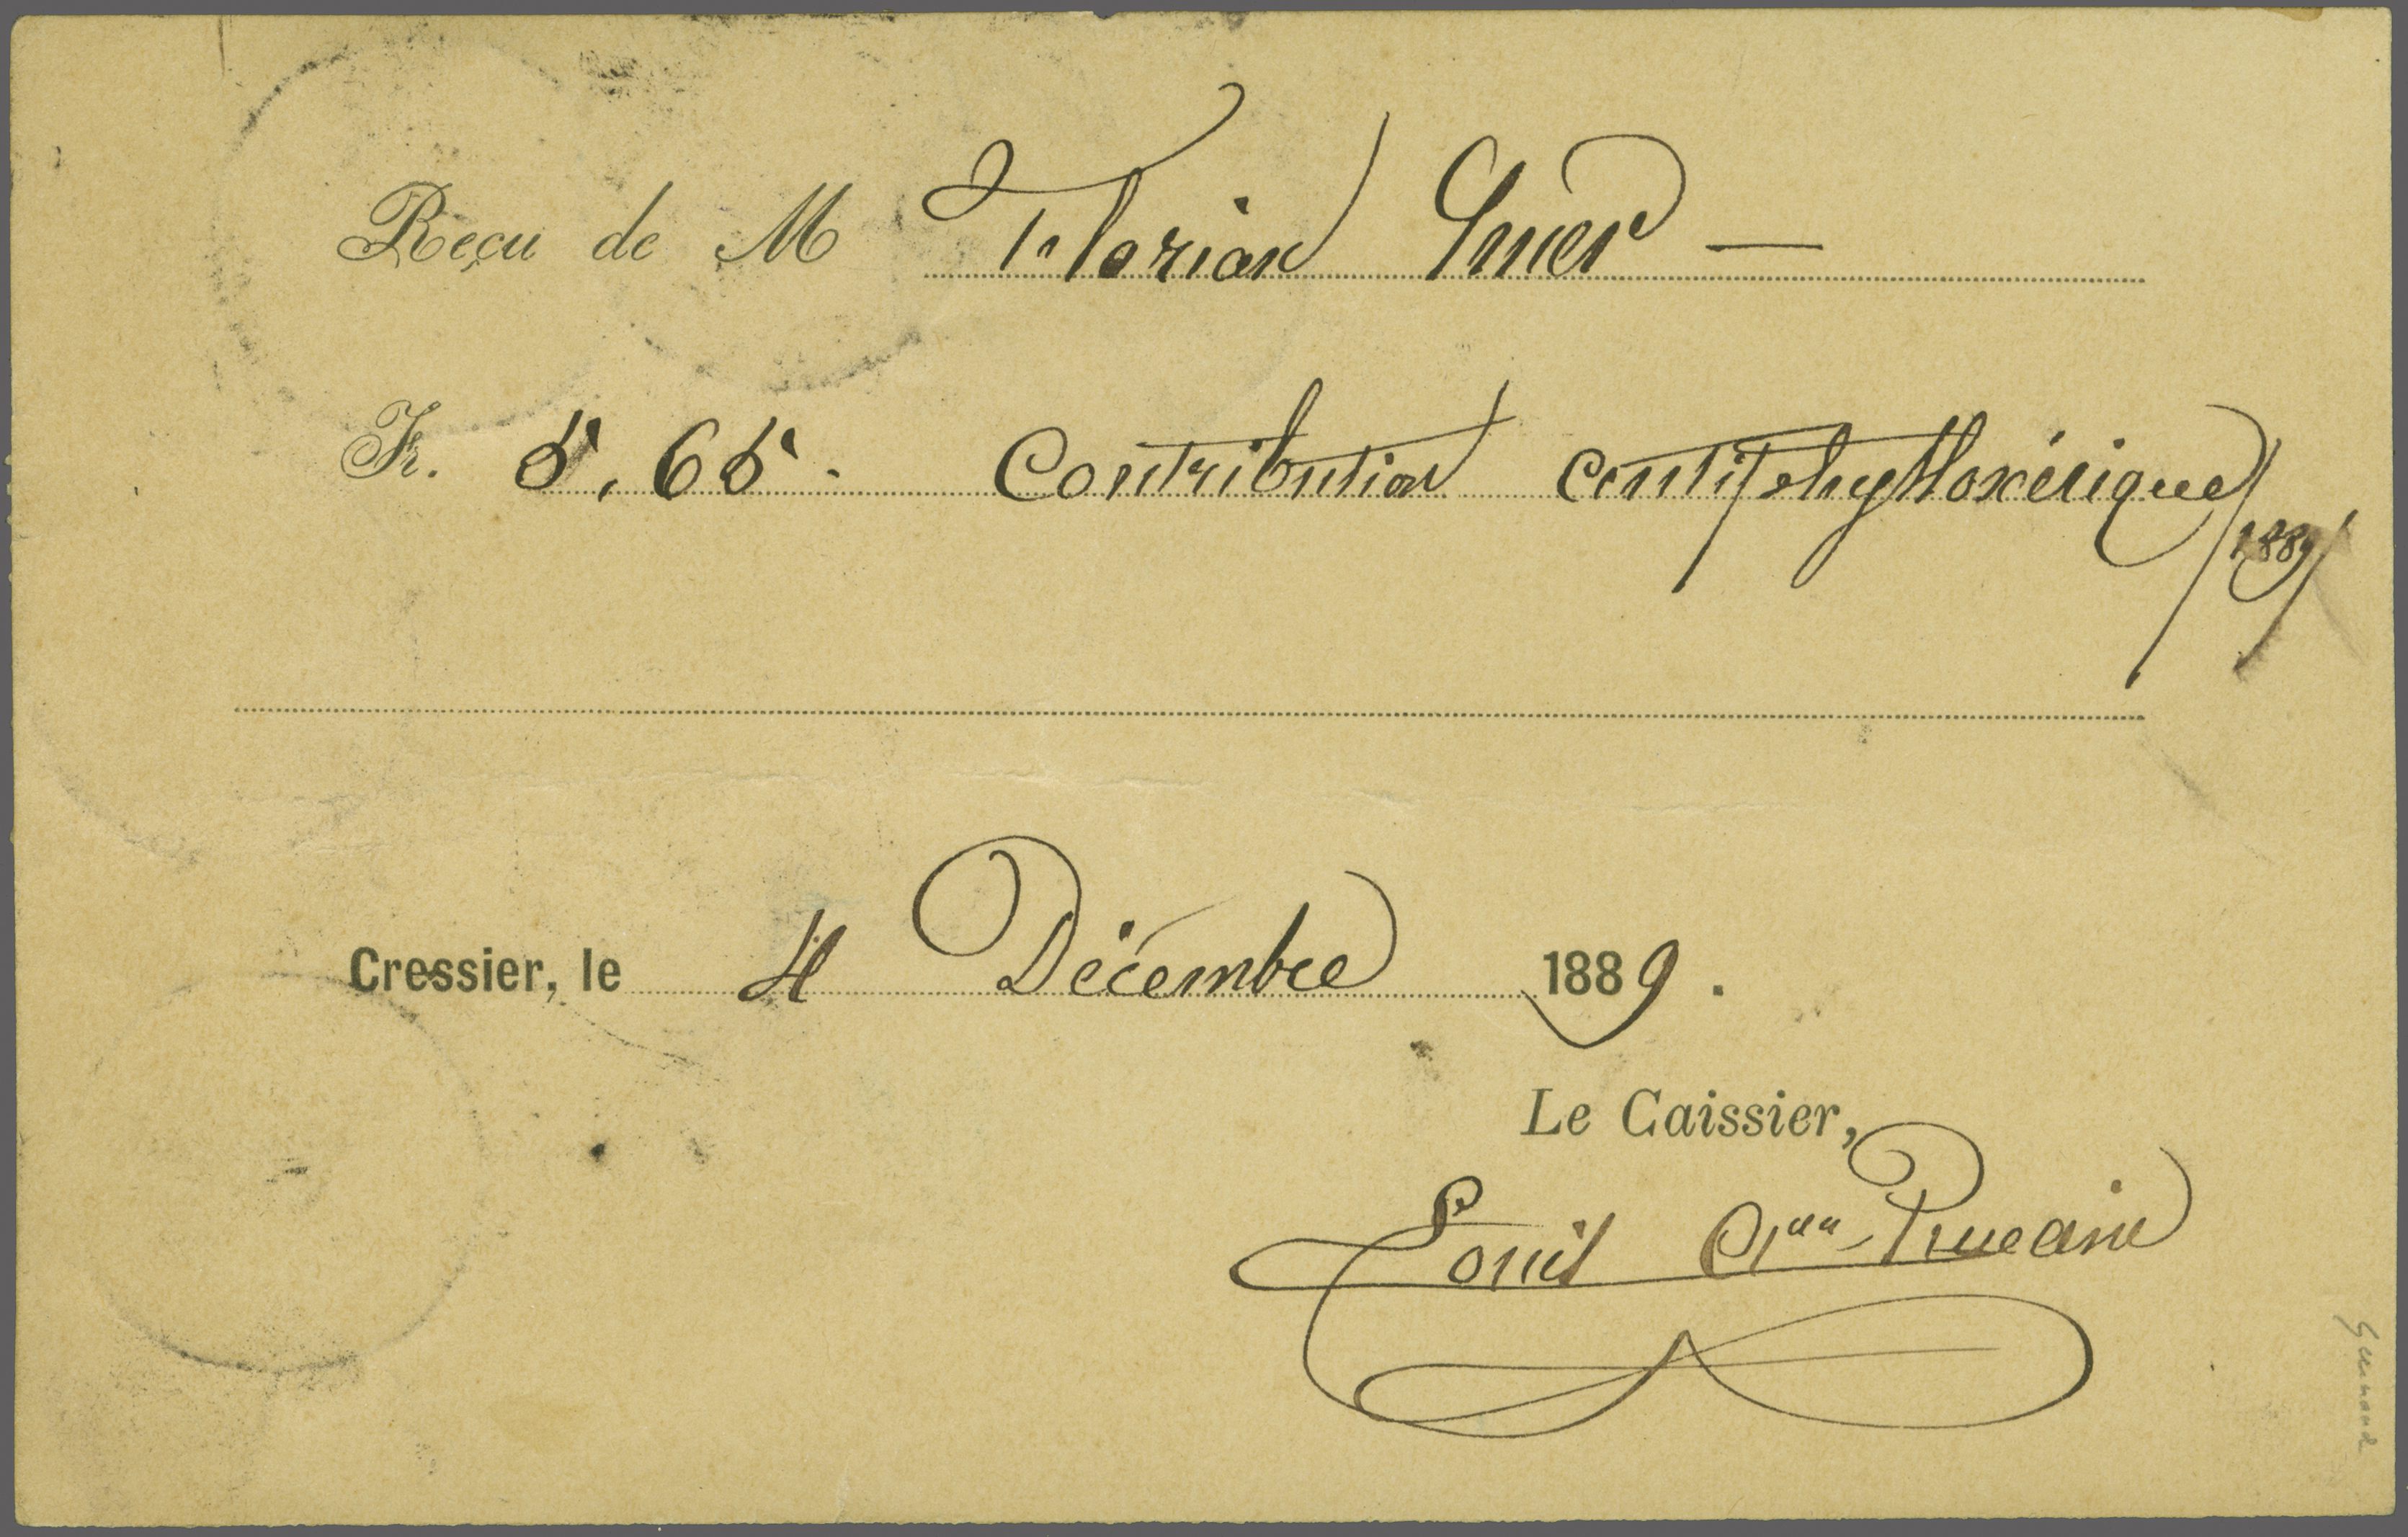 Reçu de M Florian
Fr. 5,65. Contribution antiphylloxérique
1889
Cressier, le 4 Décembre 1889.
Le Caissier,
Louis